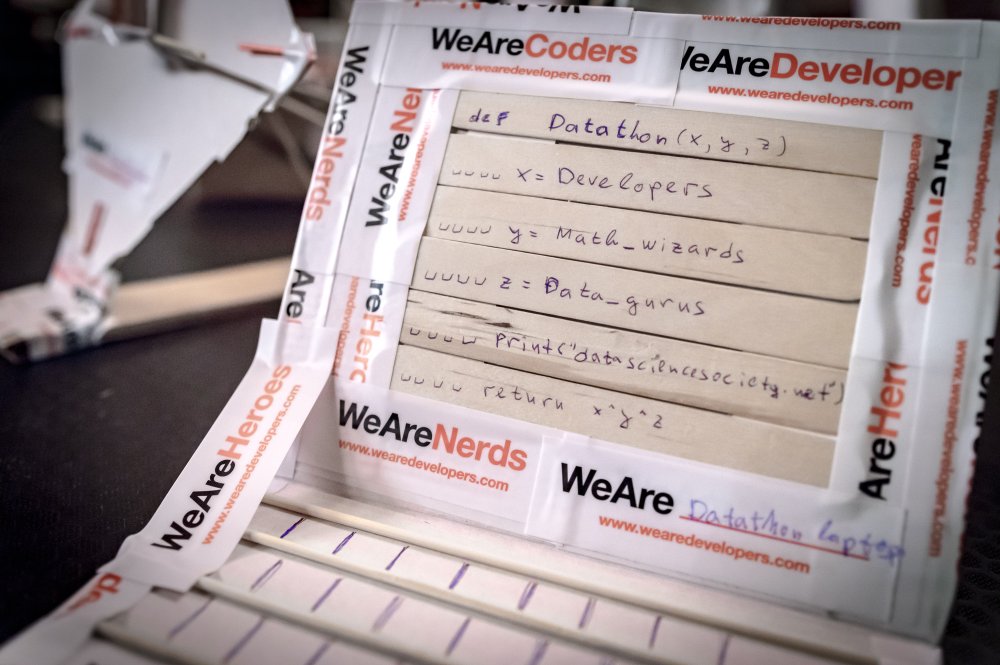 WeAreCoders
www.wearedevelopers.com
WeAreDeveloper
www.wearedevelopers.com
www.wearedevelopers.com
WeAreNerds
WeAreNer
def Datathon(x, y, z)
␣␣␣␣ x = Developers
␣␣␣␣ y = Math_wizards
␣␣␣␣ z = Data_gurus
␣␣␣␣ print("datasciencesociety.net")
␣␣␣␣ return x^y^z
AreNerds
wearedevelopers.com
WeAreNerds
www.wearedevelopers.com
WeAre Datathon laptop
www.wearedevelopers.com
WeAreHeroes
www.wearedevelopers.com
AreHer
www.wearedevelopers.com